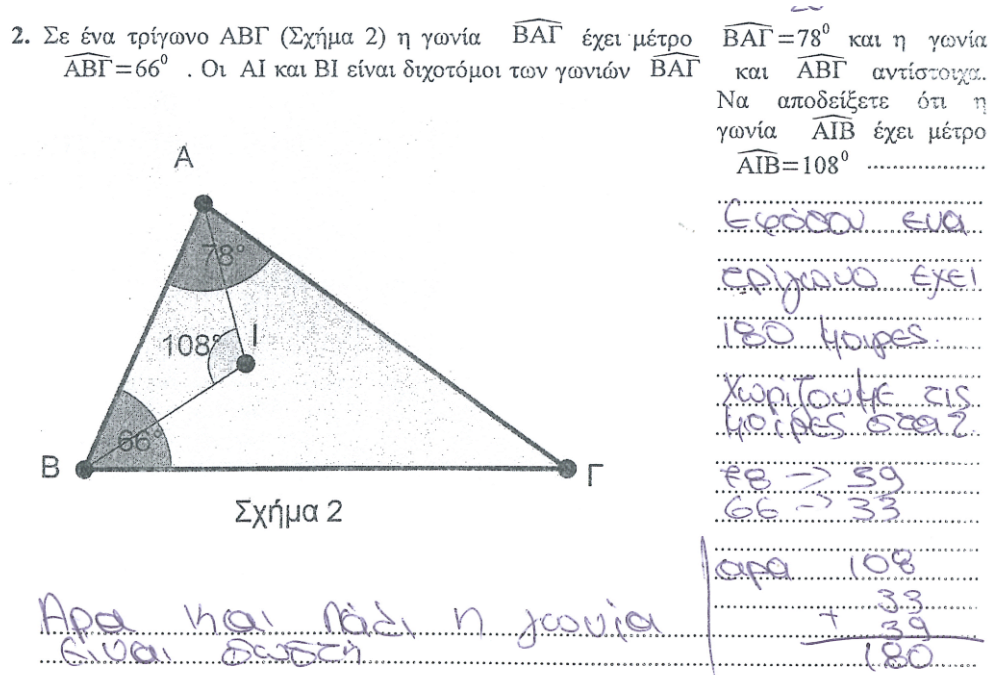 2. Σε ένα τρίγωνο ΑΒΓ (Σχήμα 2) η γωνία ΒΑΓ έχει μέτρο ΒΑΓ=78⁰ και η γωνία
ΑΒΓ=66⁰ . Οι ΑΙ και ΒΙ είναι διχοτόμοι των γωνιών ΒΑΓ και ΑΒΓ αντίστοιχα.
Να αποδείξετε ότι η
γωνία ΑΙΒ έχει μέτρο
ΑΙΒ=108⁰ ....................
Εφόσον ενα
τρίγωνο εχει
180 μοιρες
Χωρίζουμε τις
μοίρες στα 2
78 -> 39
66 -> 33
αρα 108
33
+ 39
180
Α
78°
108°
Ι
66°
Β
Γ
Σχήμα 2
Αρα και πάλι η γωνία
είναι σωστή